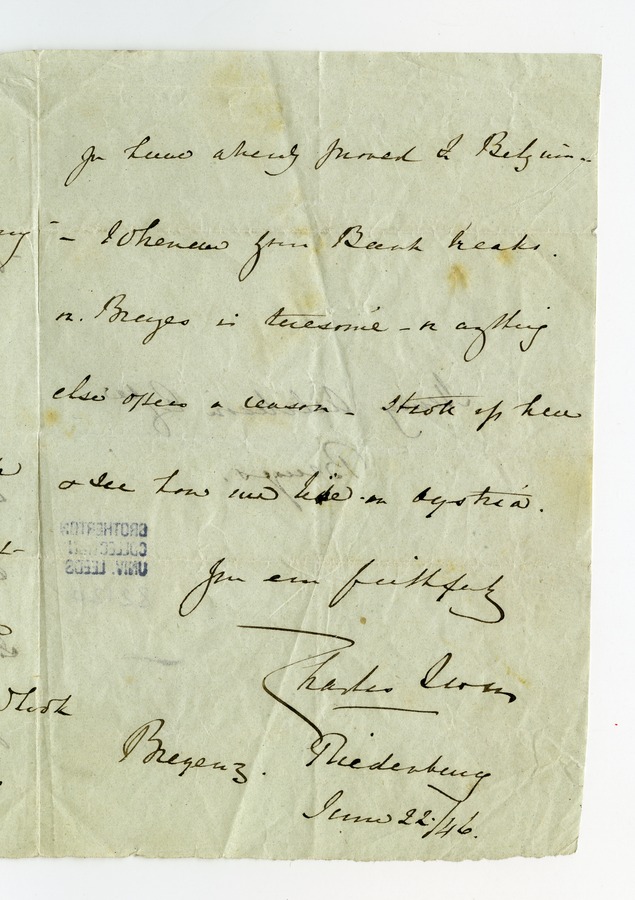 you have already proved in Belgium -
- Whenever your Bank breaks.
or Bruges is tiresome - or anything
else offers a reason - Start off here
& see how we live in Austria.
Yrs ever faithfully
Charles
Bregenz. Riedenburg
June 22/46.
BROTHERTON
COLLECTION
UNIV. LEEDS